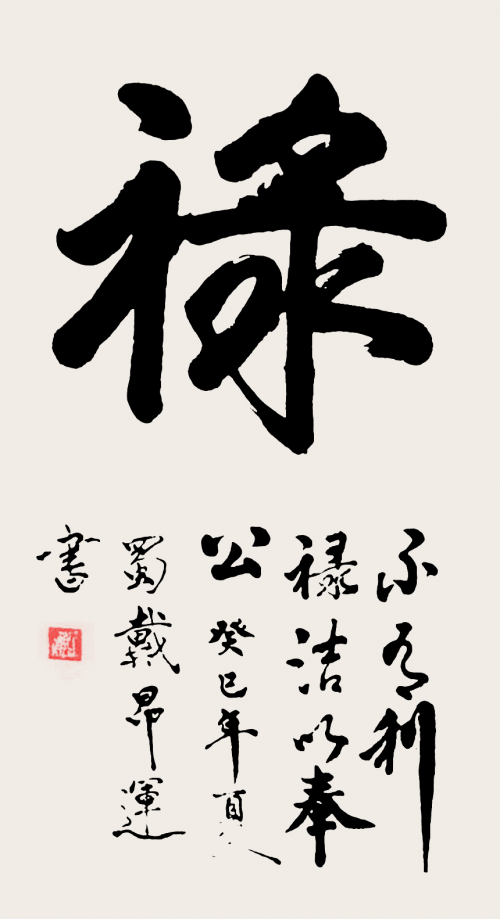 禄
不为利
禄洁以奉
公 癸巳年夏
蜀戴昂運
書